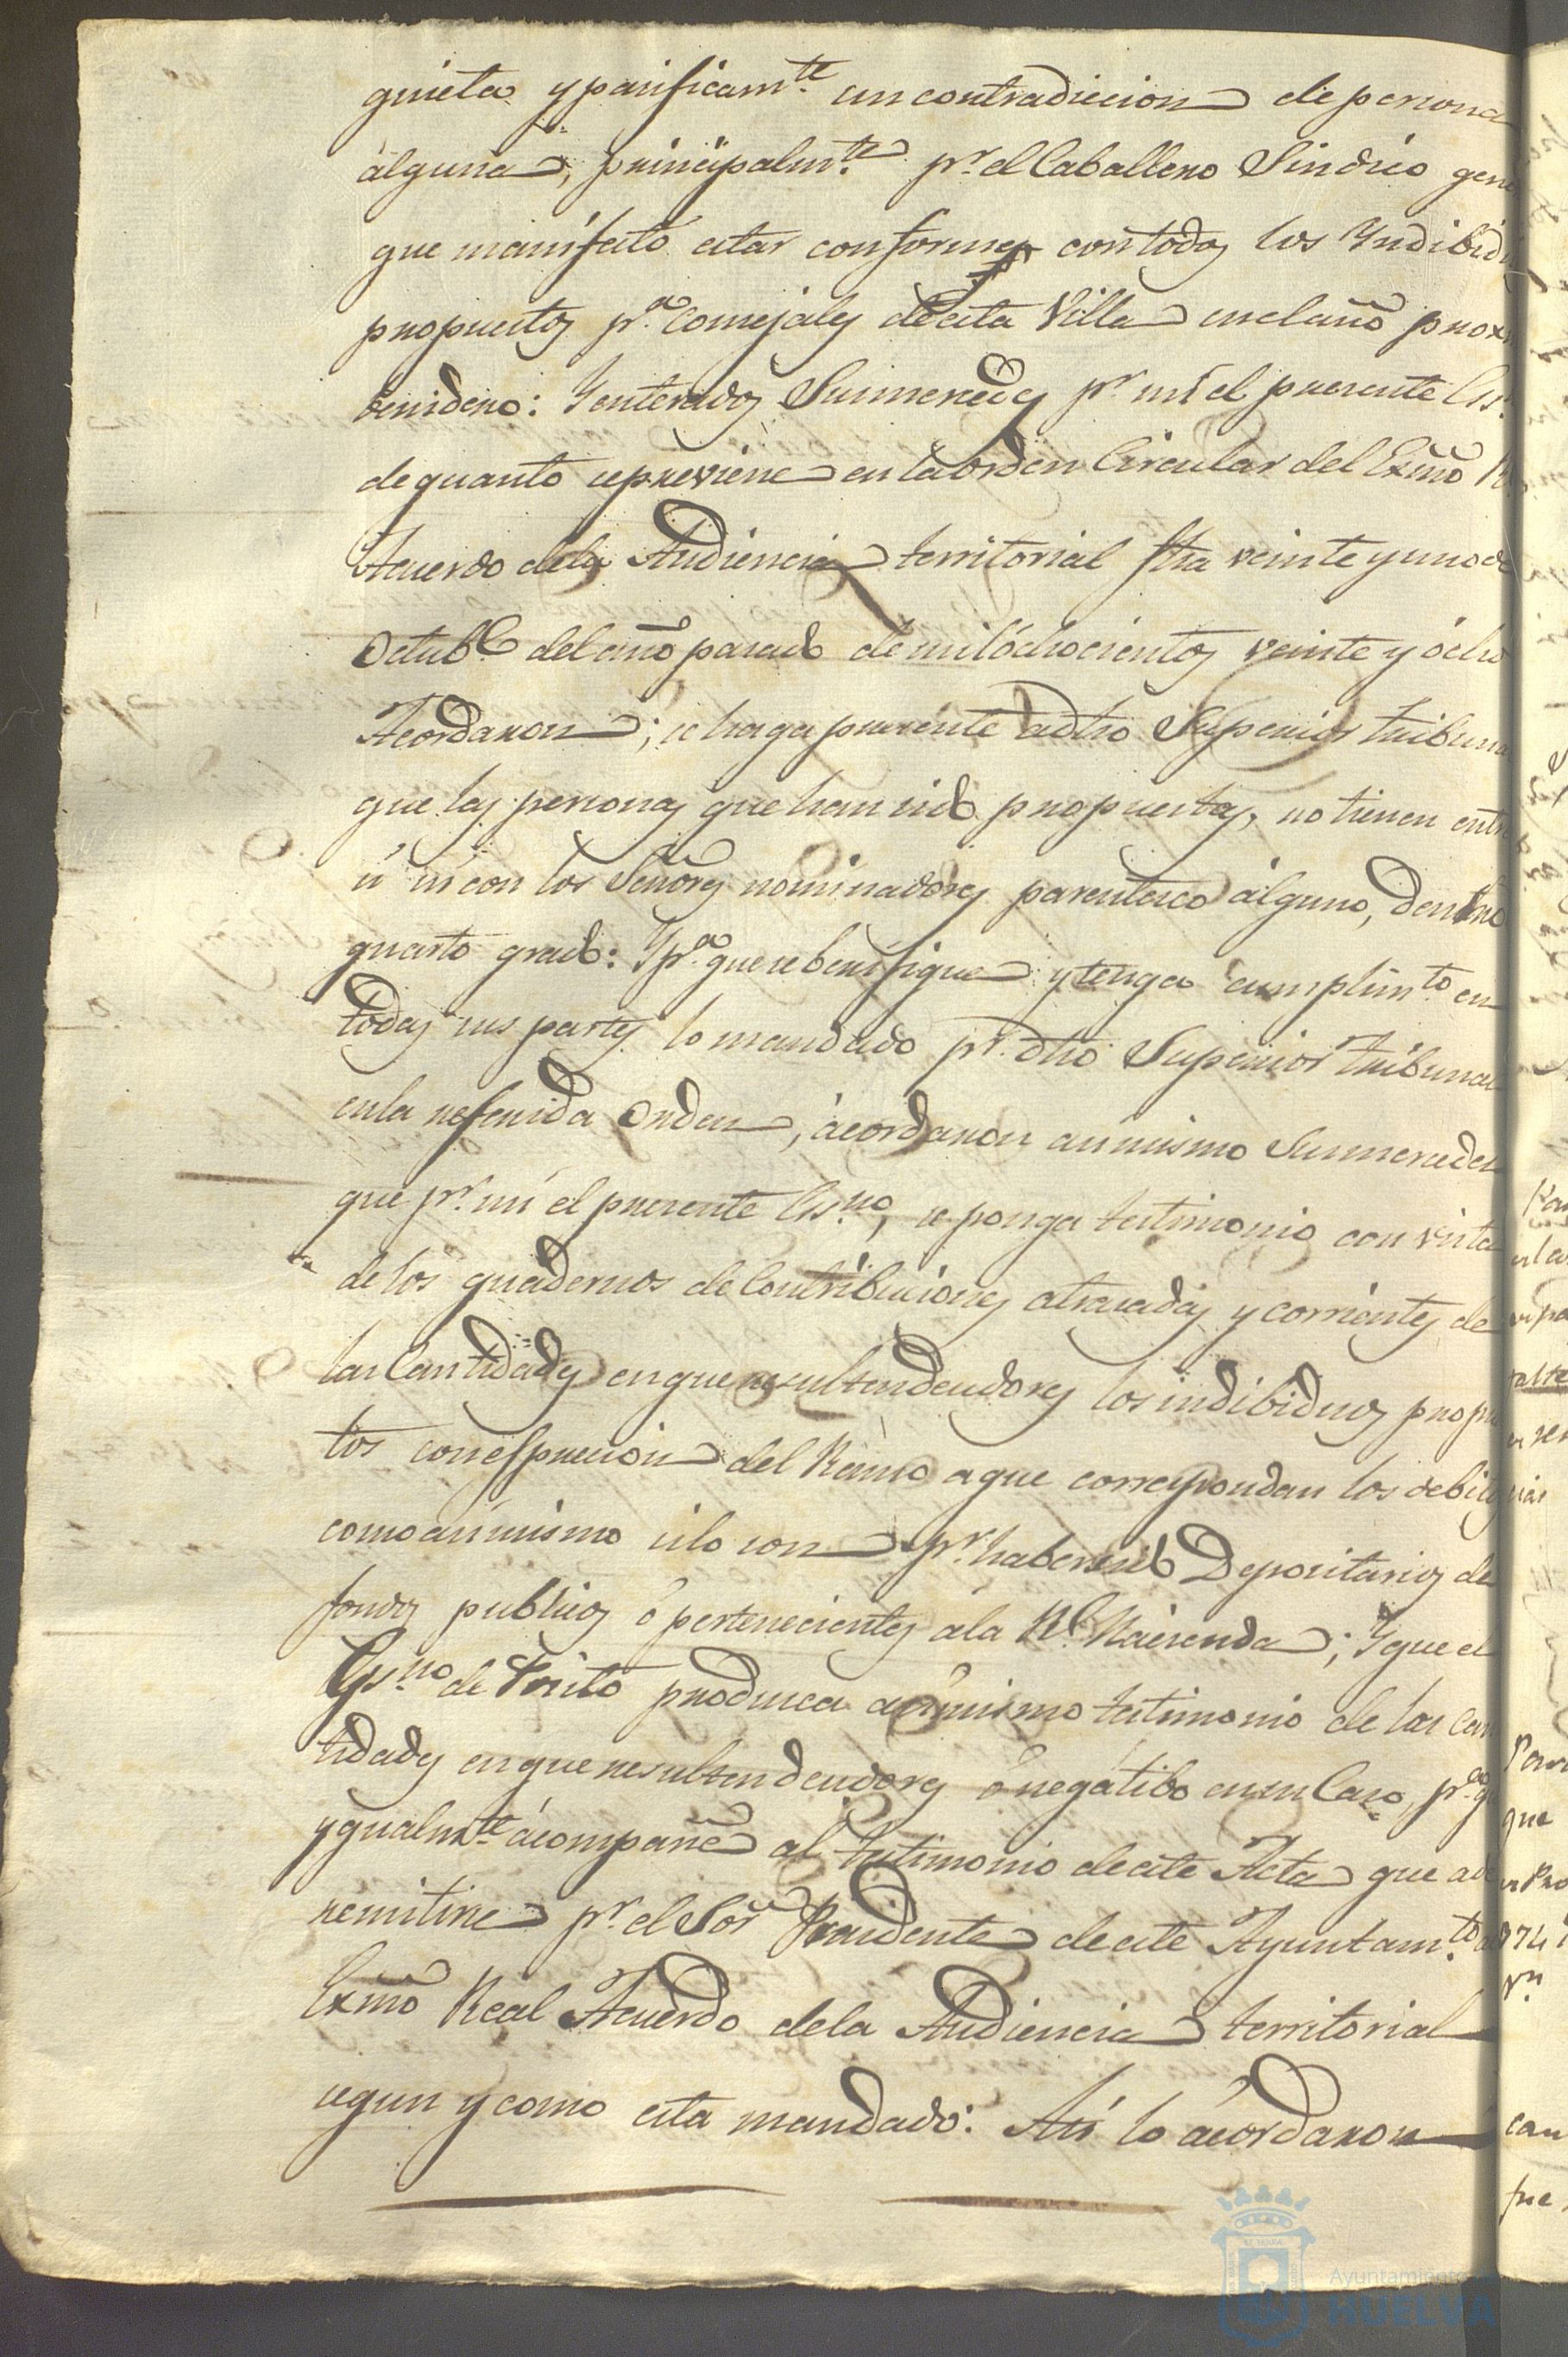 quieta y pasificamte. sin contradiccion de persona
alguna, principalmte. pr. el Caballero Sindico gene
que manifestó estar conforme con todos los Yndibidu
propuestos pra. Consejales de esta Villa en el año proxi
benidero: Y enterados Sus mercedes pr. mi el presente Ess.
de quanto se previene en la orden Circular del Exmo R
Acuerdo de la Audiencia territorial fha veinte y uno de
Octube del año pasado de mil óchocientos veinte y ócho
Acordaron; se haga presente a dho Superior tribuna
que las personas que han sido propuestas, no tienen entre
si ni con los Señores nominadores parentesco álguno, dentro
quarto grado: Y pra. que se berifique y tenga cumplimto. en
todas sus partes lo mandado pr. dho Superior tribunal
en la referida orden, ácordaron asimismo Sus mercedes
que pr. mi el presente Essno, se ponga testimonio con vista
de los quadernos de Contribuciones atrasadas y corrientes de
las Cantidades en que resulten deudores los indibiduos propues
tos con espresion del Ramo a que correspondan los debitos
como asimismo si lo son pr. haber sido Depositarios de
fondos publicos ó pertenecientes a la Rl. Hacienda; Y que el
Essno de Posito produzca asimismo testimonio de las Can
tidades en que resulten deudores ó negatibo en su Caso, pra. q
ygualmte ácompañe al testimonio de este Acta que a de
remitirse pr. el Sor Presidente de este Ayuntamto. al
Exmo Real Acuerdo de la Audiencia territorial
segun y como esta mandado: Asi lo ácordaron
Ayuntamiento
HUELVA